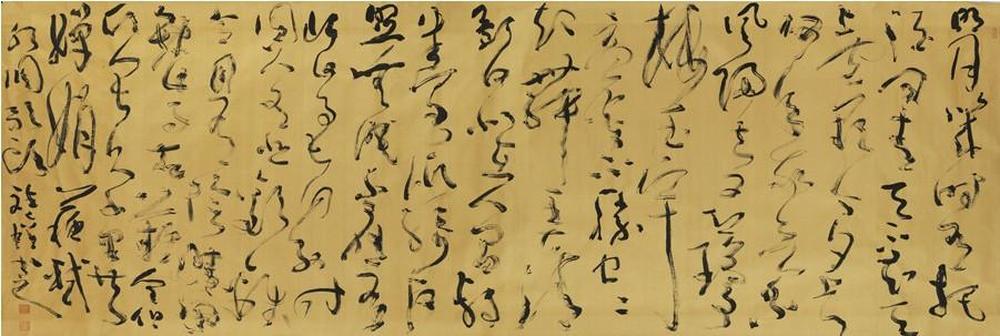 明月幾時有把
酒問青天不知天
上宮闕今夕是
何年我欲乘
風歸去又恐瓊
樓玉宇
高處不勝寒
起舞弄清
影何似在人間轉
朱閣低綺户
照無眠不應有
恨何事長向別時
圓人有悲歡離
合月有陰晴圓
缺此事古難全但
願人長久千里共
嬋娟 蘇軾
水調歌頭